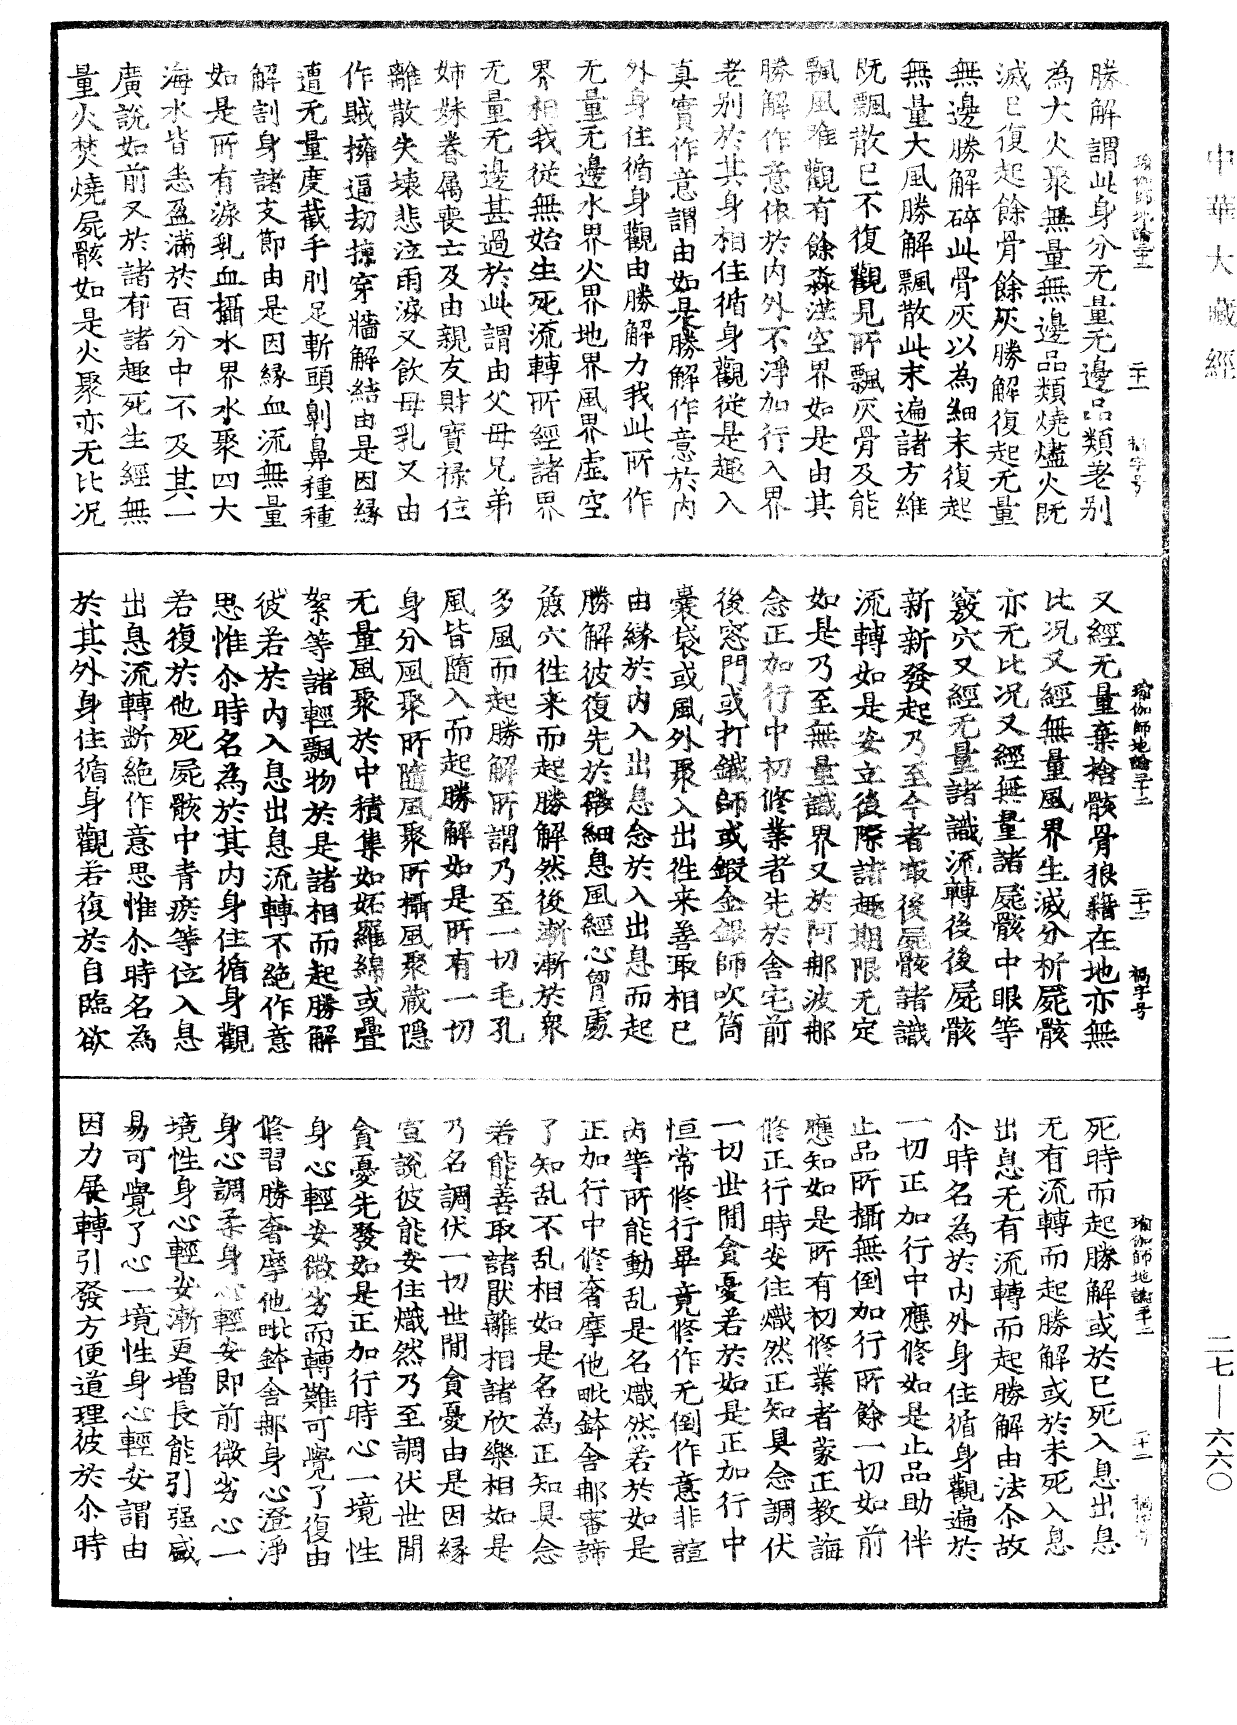 中華大藏經
瑜伽師地論三十二 二十一 禍字号
勝解謂此身分无量无邊品類差別
為大火聚無量無邊品類燒燼火既
滅已復起餘骨餘灰勝解復起无量
無邊勝解碎此骨灰以為細末復起
無量大風勝解飄散此末遍諸方維
既飄散已不復觀見所飄灰骨及能
飄風唯觀有餘淼漭空界如是由其
勝解作意依於內外不淨加行入界
差別於其身相住循身觀從是趣入
真實作意謂由如是勝解作意於內
外身住循身觀由勝解力我此所作
无量无邊水界火界地界風界虛空
界相我從無始生死流轉所經諸界
无量无邊甚過於此謂由父母兄弟
姉妹眷属喪亡及由親友財寶禄位
離散失壞悲泣雨淚又飲母乳又由
作賊擁逼劫掠穿牆解結由是因緣
遭无量度截手刖足斬頭劓鼻種種
解割身諸支節由是因緣血流無量
如是所有淚乳血攝水界水聚四大
海水皆悉盈滿於百分中不及其一
廣說如前又於諸有諸趣死生經無
量火焚燒屍骸如是火聚亦无比況
瑜伽師地論三十二 二十二 禍字号
又經无量棄捨骸骨狼籍在地亦無
比況又經無量風界生滅分析屍骸
亦无比況又經無量諸屍骸中眼等
竅穴又經无量諸識流轉後後屍骸
新新發起乃至今者㝡後屍骸諸識
流轉如是安立後際諸趣期限无定
如是乃至無量識界又於阿那波那
念正加行中初修業者先於舍宅前
後窓門或打鐵師或鍛金銀師吹筒
橐袋或風外聚入出往来善取相已
由緣於內入出息念於入出息而起
勝解彼復先於微細息風經心胷處
麁穴往来而起勝解然後漸漸於衆
多風而起勝解所謂乃至一切毛孔
風皆隨入而起勝解如是所有一切
身分風聚所隨風聚所攝風聚藏隱
无量風聚於中積集如妬羅綿或疊
絮等諸輕飄物於是諸相而起勝解
彼若於內入息出息流轉不絶作意
思惟尒時名為於其内身住循身觀
若復於他死屍骸中青瘀等位入息
出息流轉断絶作意思惟尒時名為
於其外身住循身觀若復於自臨欲
瑜伽師地論三十二 二十二 禍字号
死時而起勝解或於已死入息出息
无有流轉而起勝解或於未死入息
出息无有流轉而起勝解由法尒故
尒時名為於内外身住循身觀遍於
一切正加行中應修如是止品助伴
止品所攝無倒加行所餘一切如前
應知如是所有初修業者蒙正教誨
修正行時安住熾然正知具念調伏
一切世間貪憂若於如是正加行中
恒常修行畢竟修作无倒作意非諠
閙等所能動乱是名熾然若於如是
正加行中修奢摩他毗鉢舍那審諦
了知乱不乱相如是名為正知具念
若能善取諸猒離相諸欣樂相如是
乃名調伏一切世間貪憂由是因緣
宣說彼能安住熾然乃至調伏世間
貪憂先發如是正加行時心一境性
身心輕安微劣而轉難可覺了復由
修習勝奢摩他毗鉢舍那身心澄淨
身心調柔身心輕安即前微劣心一
境性身心輕安漸更增長能引强盛
易可覺了心一境性身心輕安謂由
因力展轉引發方便道理彼於尒時
二七—六六〇